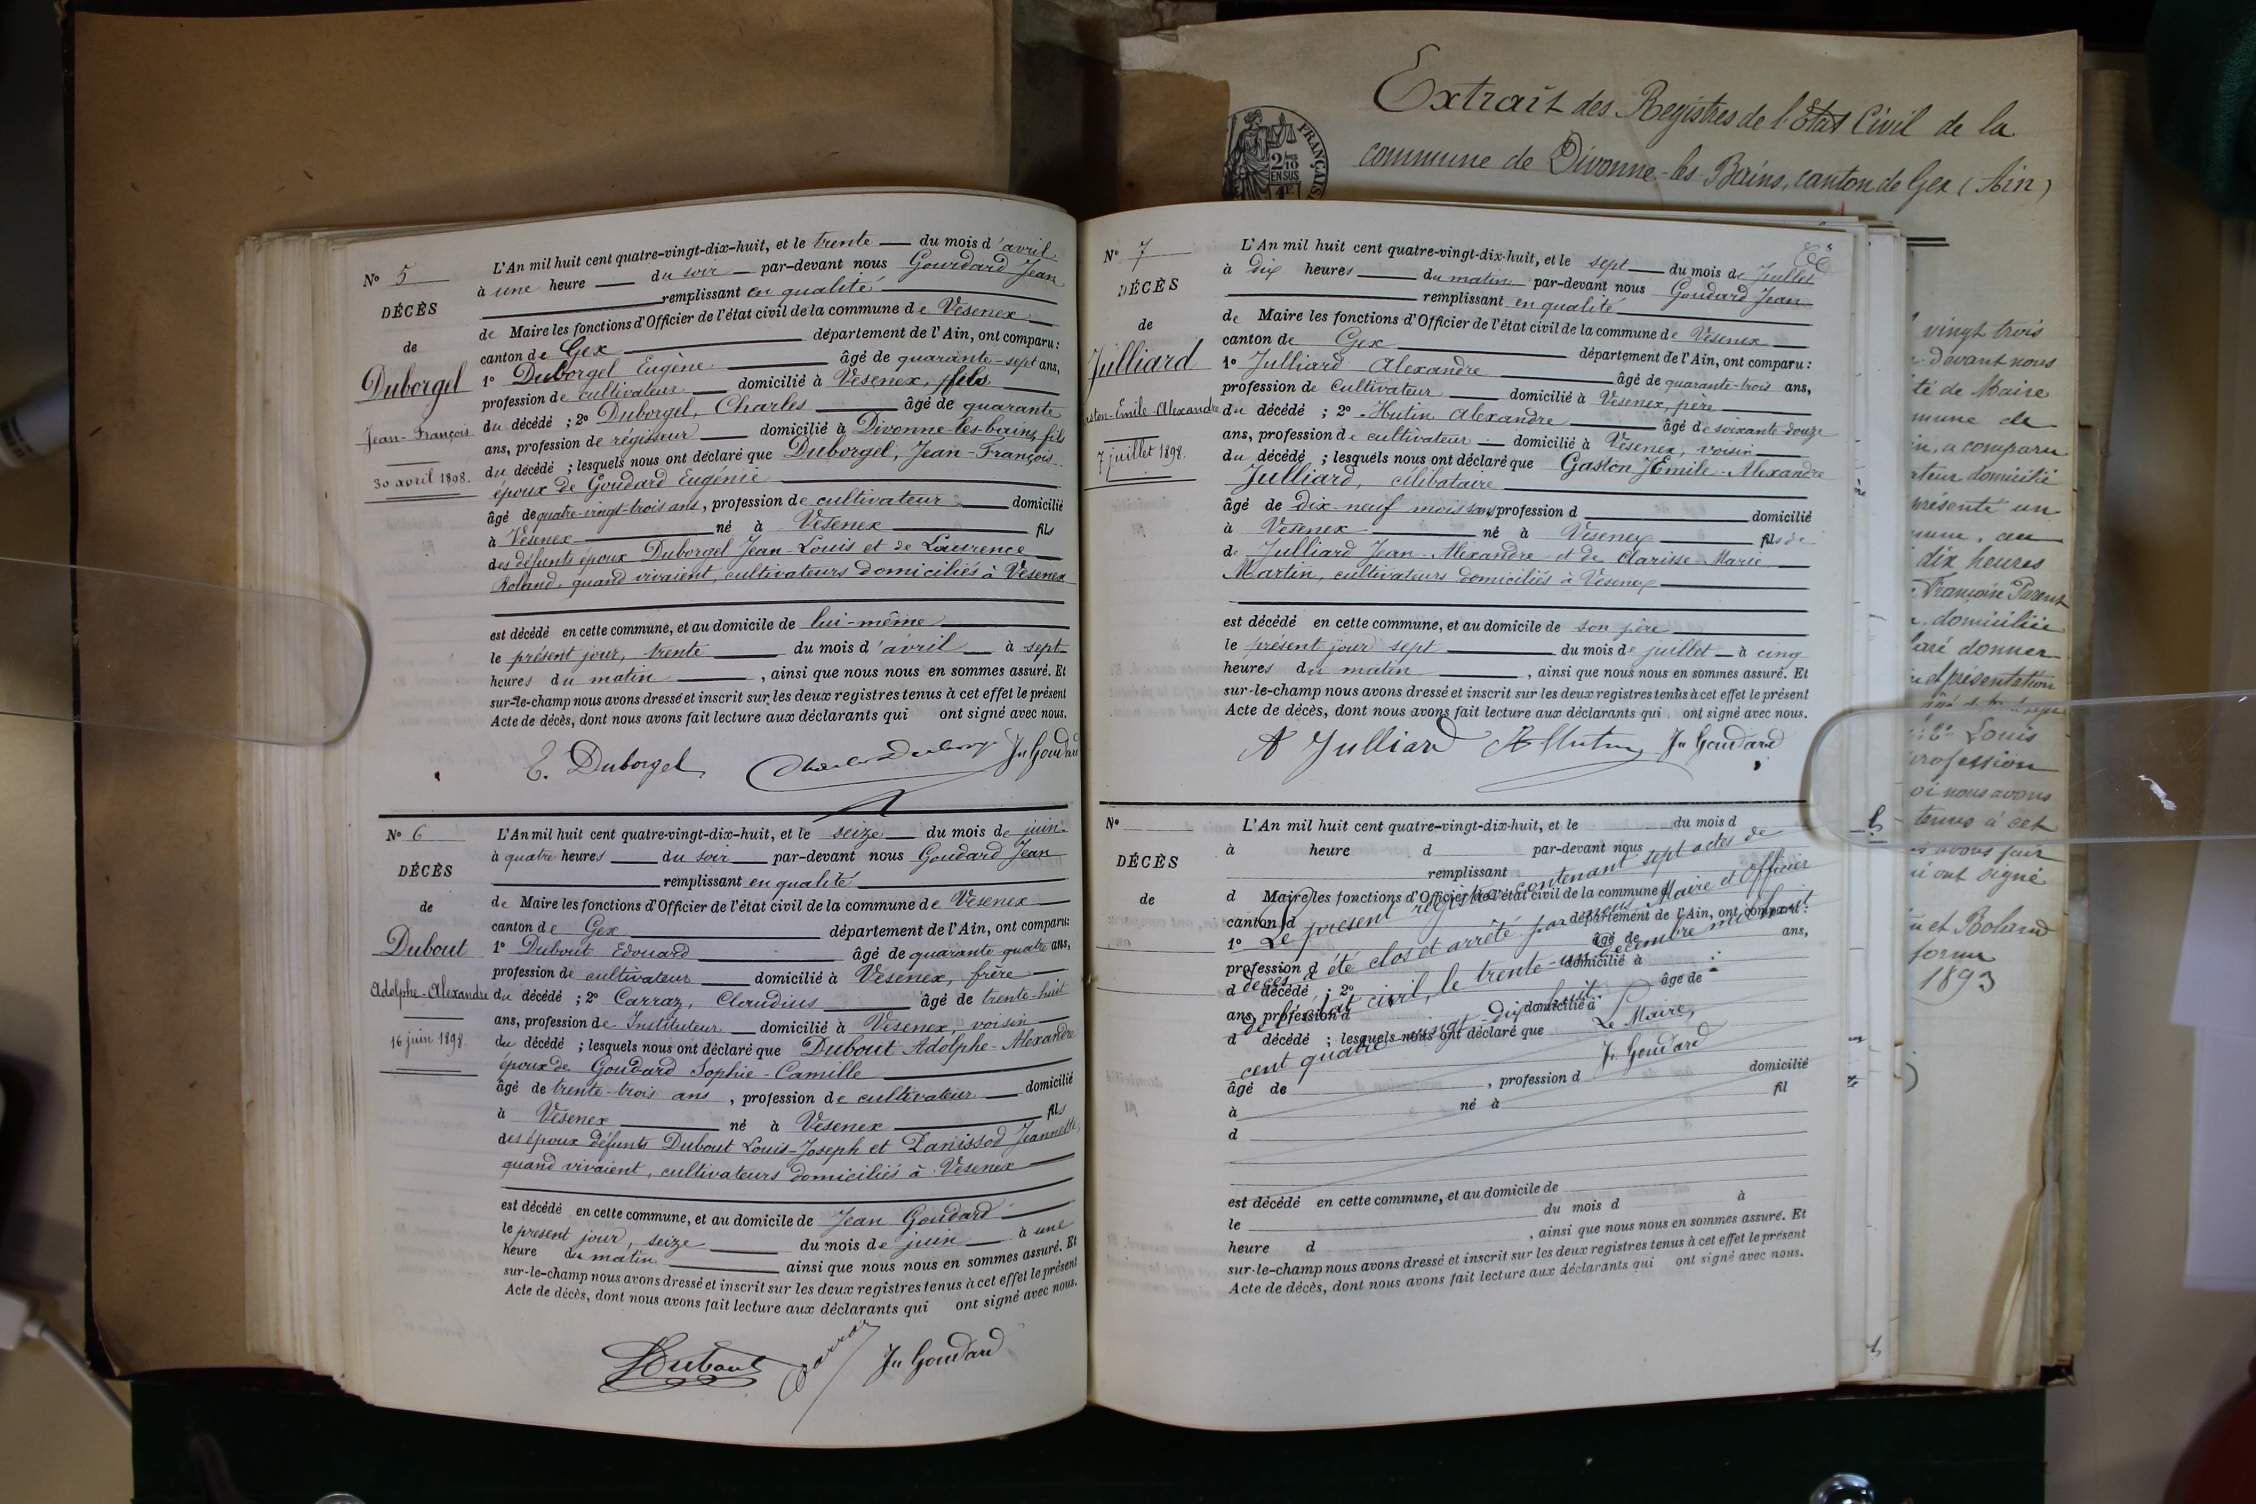 Extrait des Registres de l'Etat Civil de la
commune de Divonne-les-Bains, canton de Gex (Ain)
FRANÇAIS
2/10 EN SUS
N° 5
DÉCÈS
de
Duborgel
Jean-François
30 avril 1898.
L'An mil huit cent quatre-vingt-dix-huit, et le trente du mois d'avril
à une heure du soir par-devant nous Gourdard Jean
remplissant en qualité
de Maire les fonctions d'Officier de l'état civil de la commune de Vésenex
canton de Gex département de l'Ain, ont comparu :
1° Duborgel Eugène âgé de quarante-sept ans,
profession de cultivateur domicilié à Vésenex, fils
du décédé ; 2° Duborgel, Charles âgé de quarante
ans, profession de régisseur domicilié à Divonne-les-bains, fils
du décédé ; lesquels nous ont déclaré que Duborgel, Jean-François
époux de Goudard Eugénie
âgé de quatre-vingt-trois ans, profession de cultivateur domicilié
à Vésenex né à Vésenex fils
des défunts époux Duborgel Jean-Louis et de Laurence
Roland, quand vivaient, cultivateurs domiciliés à Vésenex
est décédé en cette commune, et au domicile de lui-même
le présent jour, trente du mois d'avril à sept
heures du matin, ainsi que nous nous en sommes assuré. Et
sur-le-champ nous avons dressé et inscrit sur les deux registres tenus à cet effet le présent
Acte de décès, dont nous avons fait lecture aux déclarants qui ont signé avec nous.
E. Duborgel Charles Duborgel Jn Goudard
N° 6
DÉCÈS
de
Dubout
Adolphe-Alexandre
16 juin 1898.
L'An mil huit cent quatre-vingt-dix-huit, et le seize du mois de juin
à quatre heures du soir par-devant nous Goudard Jean
remplissant en qualité
de Maire les fonctions d'Officier de l'état civil de la commune de Vésenex
canton de Gex département de l'Ain, ont comparu:
1° Dubout Edouard âgé de quarante-quatre ans,
profession de cultivateur domicilié à Vésenex, frère
du décédé ; 2° Carraz, Claudius âgé de trente-huit
ans, profession de Instituteur domicilié à Vésenex, voisin
du décédé ; lesquels nous ont déclaré que Dubout Adolphe-Alexandre
époux de Goudard Sophie-Camille
âgé de trente-trois ans, profession de cultivateur domicilié
à Vésenex né à Vésenex fils
des époux défunts Dubout Louis-Joseph et Panissod Jeannette,
quand vivaient, cultivateurs domiciliés à Vésenex
est décédé en cette commune, et au domicile de Jean Goudard
le présent jour, seize du mois de juin à une
heure du matin ainsi que nous nous en sommes assuré. Et
sur-le-champ nous avons dressé et inscrit sur les deux registres tenus à cet effet le présent
Acte de décès, dont nous avons fait lecture aux déclarants qui ont signé avec nous.
Dubout Carraz Jn Goudard
N° 7
DÉCÈS
de
Julliard
Gaston-Emile-Alexandre
7 juillet 1898.
L'An mil huit cent quatre-vingt-dix-huit, et le sept du mois de Juillet
à dix heures du matin par-devant nous Goudard Jean
remplissant en qualité
de Maire les fonctions d'Officier de l'état civil de la commune de Vésenex
canton de Gex département de l'Ain, ont comparu :
1° Julliard Alexandre âgé de quarante-trois ans,
profession de Cultivateur domicilié à Vésenex, père
du décédé ; 2° Hutin Alexandre âgé de soixante-douze
ans, profession de cultivateur domicilié à Vésenex, voisin
du décédé ; lesquels nous ont déclaré que Gaston Emile-Alexandre
Julliard, célibataire
âgé de dix-neuf mois sans profession d domicilié
à Vésenex né à Vésenex fils de
de Julliard Jean-Alexandre et de Clarisse-Marie
Martin, cultivateurs domiciliés à Vésenex
est décédé en cette commune, et au domicile de son père
le présent jour sept du mois de juillet à cinq
heures du matin, ainsi que nous nous en sommes assuré. Et
sur-le-champ nous avons dressé et inscrit sur les deux registres tenus à cet effet le présent
Acte de décès, dont nous avons fait lecture aux déclarants qui ont signé avec nous.
A Julliard A Hutin Jn Goudard
N°
DÉCÈS
de
L'An mil huit cent quatre-vingt-dix-huit, et le du mois d
à heure d par-devant nous
remplissant
d Maire les fonctions d'Officier de l'état civil de la commune d
canton d département de l'Ain, ont comparu :
1° âgé de ans,
profession d domicilié à
d décédé ; 2° âgé de
ans, profession d domicilié à
d décédé ; lesquels nous ont déclaré que
âgé de , profession d domicilié
à né à fil
d
est décédé en cette commune, et au domicile de
le du mois d à
heure d , ainsi que nous nous en sommes assuré. Et
sur-le-champ nous avons dressé et inscrit sur les deux registres tenus à cet effet le présent
Acte de décès, dont nous avons fait lecture aux déclarants qui ont signé avec nous.
Le présent registre contenant sept actes de
décès a été clos et arrêté par nous Maire et Officier
de l'état civil, le trente-un Décembre mil huit
cent quatre-vingt-dix-huit.
Le Maire,
Jn Goudard
vingt trois
devant nous
té de Maire
mune de
in, a comparu
ateur domicilié
présenté un
mune, au
dix heures
Françoise Parent
domiciliée
laré donner
et présentation
Louis
profession
oi nous avons
tenus à cet
s avons fait
ui ont signé
et Roland
forme
1893